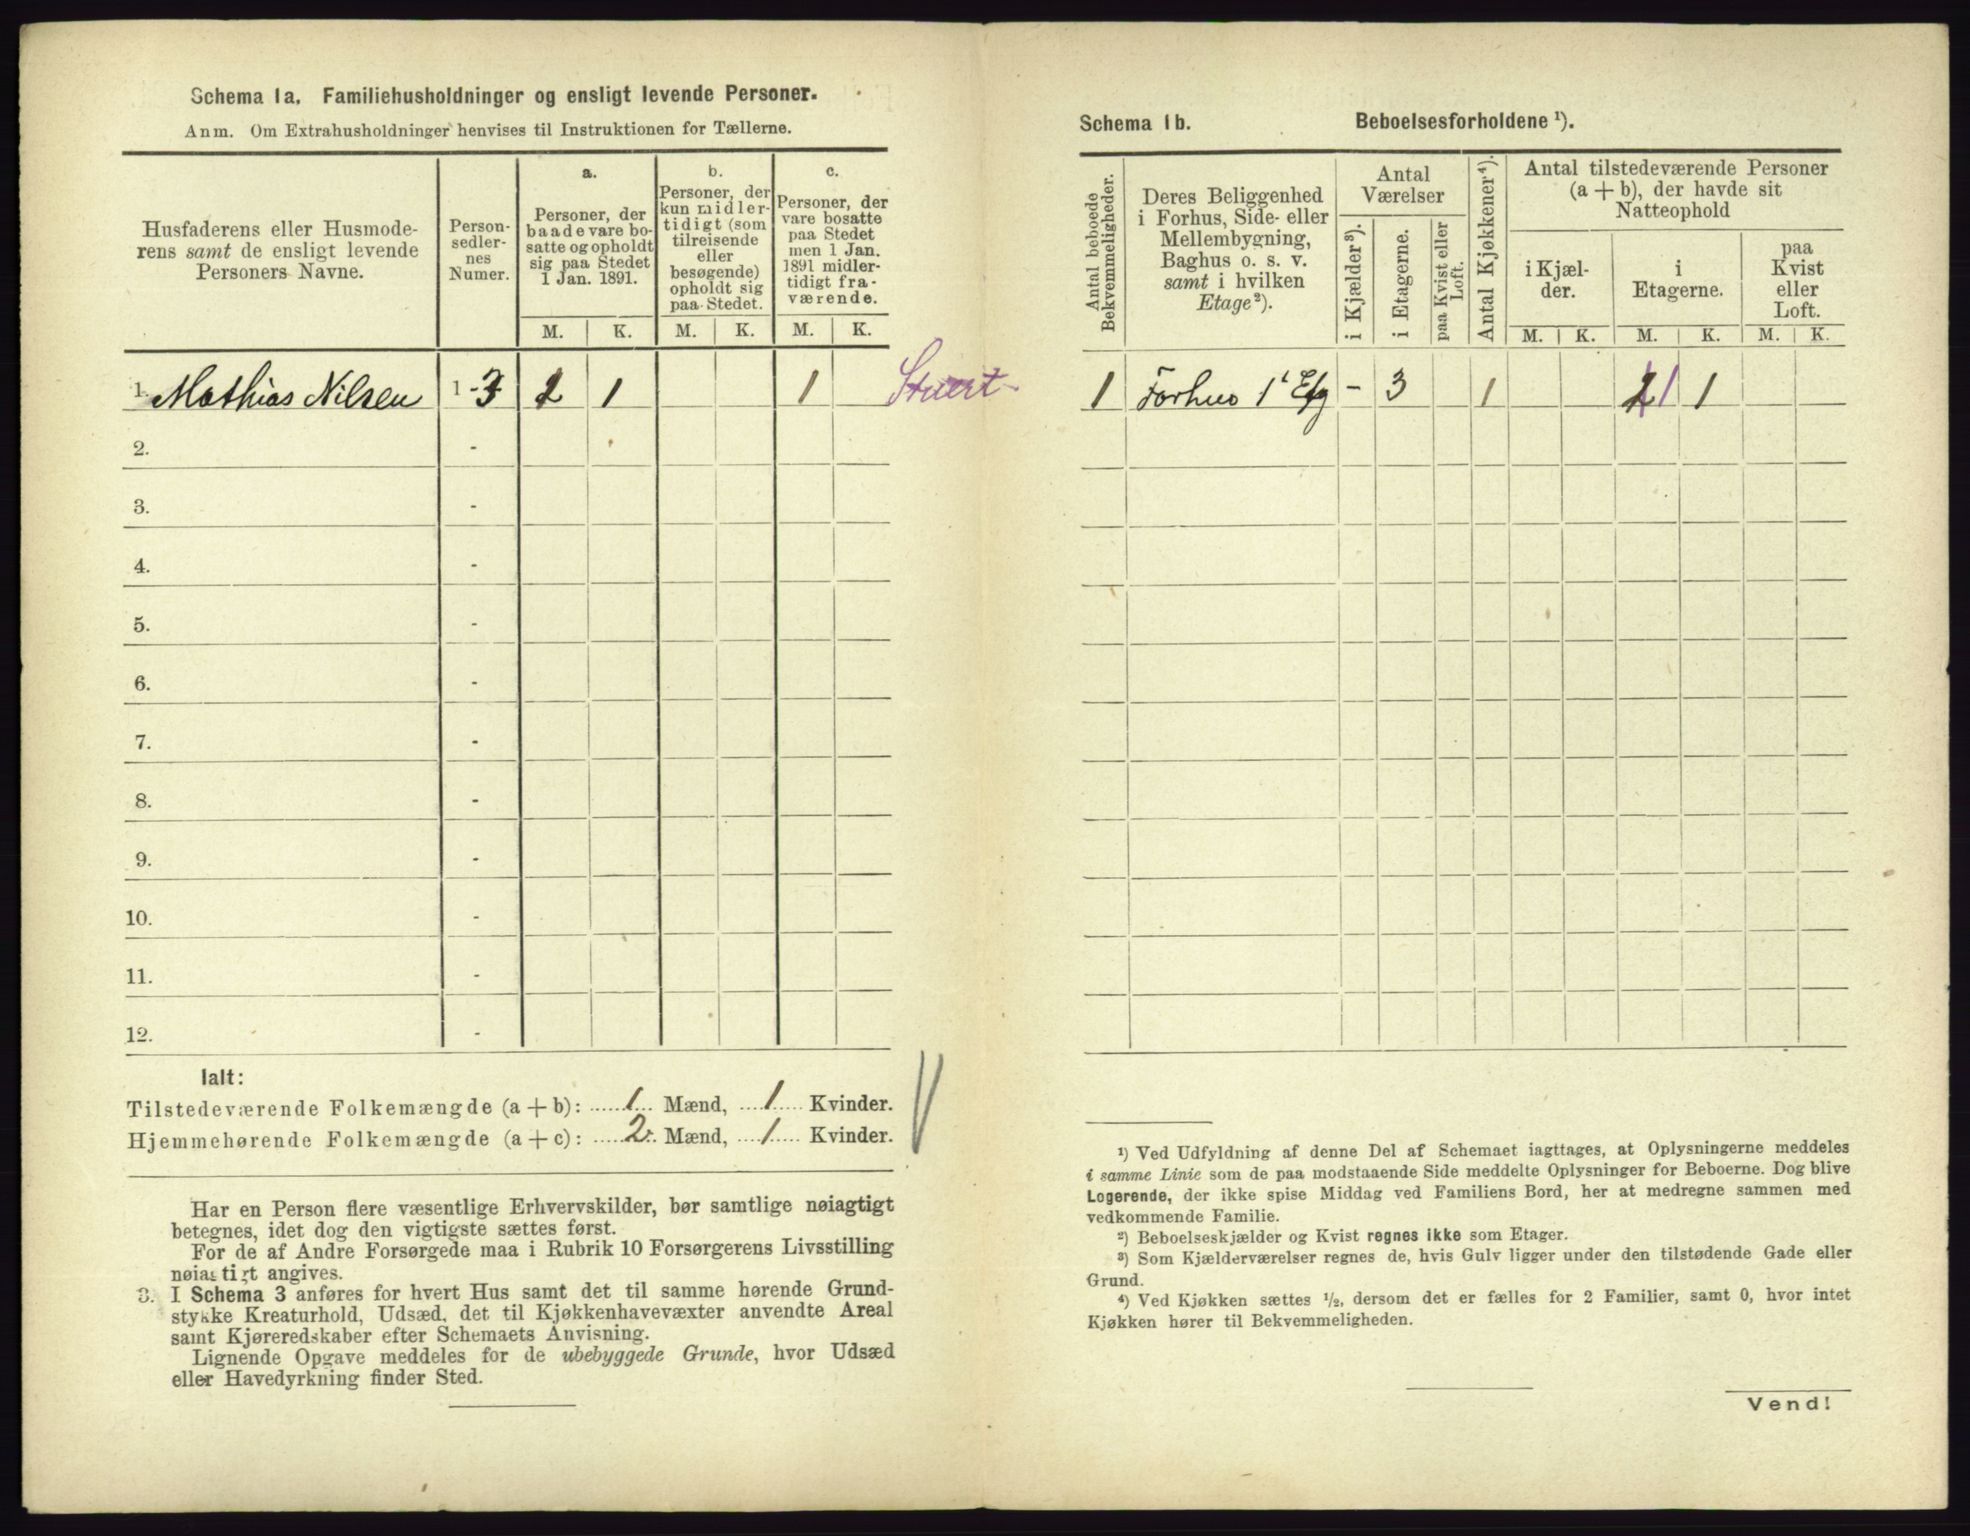 Schema 1a. Familiehusholdninger og ensligt levende Personer.
Anm. Om Extrahusholdninger henvises til Instruktionen for Tællerne.
Husfaderens eller Husmoderens samt de ensligt levende Personers Navne.
Personsedlernes Numer.
a. Personer, der baade vare bosatte og opholdt sig paa Stedet 1 Jan. 1891.
b. Personer, der kun midlertidigt (som tilreisende eller besøgende) opholdt sig paa Stedet.
c. Personer, der vare bosatte paa Stedet men 1 Jan. 1891 midlertidigt fraværende.
M. K. M. K. M. K.
1. Mathias Nilsen 1-3 1 1 Stuert
2. -
3. -
4. -
5. -
6. -
7. -
8. -
9. -
10. -
11. -
12. -
Ialt:
Tilstedeværende Folkemængde (a + b): 1 Mænd, 1 Kvinder.
Hjemmehørende Folkemængde (a + c): 2 Mænd, 1 Kvinder.
Har en Person flere væsentlige Erhvervskilder, bør samtlige nøiagtigt
betegnes, idet dog den vigtigste sættes først.
For de af Andre Forsørgede maa i Rubrik 10 Forsørgerens Livsstilling
nøiagtigt angives.
3. I Schema 3 anføres for hvert Hus samt det til samme hørende Grund-
stykke Kreaturhold, Udsæd, det til Kjøkkenhavevæxter anvendte Areal
samt Kjøreredskaber efter Schemaets Anvisning.
Lignende Opgave meddeles for de ubebyggede Grunde, hvor Udsæd
eller Havedyrkning finder Sted.
Schema 1b. Beboelsesforholdene ¹).
Antal beboede Bekvemmeligheder.
Deres Beliggenhed i Forhus, Side- eller Mellembygning, Baghus o. s. v. samt i hvilken Etage²).
Antal Værelser
i Kjælder³).
i Etagerne.
paa Kvist eller Loft.
Antal Kjøkkener⁴).
Antal tilstedeværende Personer (a + b), der havde sit Natteophold
i Kjælder.
i Etagerne.
paa Kvist eller Loft.
M. K. M. K. M. K.
1 Forhus 1' Etg - 3 1 2 1 1
¹) Ved Udfyldning af denne Del af Schemaet iagttages, at Oplysningerne meddeles
i samme Linie som de paa modstaaende Side meddelte Oplysninger for Beboerne. Dog blive
Logerende, der ikke spise Middag ved Familiens Bord, her at medregne sammen med
vedkommende Familie.
²) Beboelseskjælder og Kvist regnes ikke som Etager.
³) Som Kjælderværelser regnes de, hvis Gulv ligger under den tilstødende Gade eller
Grund.
⁴) Ved Kjøkken sættes ½, dersom det er fælles for 2 Familier, samt 0, hvor intet
Kjøkken hører til Bekvemmeligheden.
Vend!